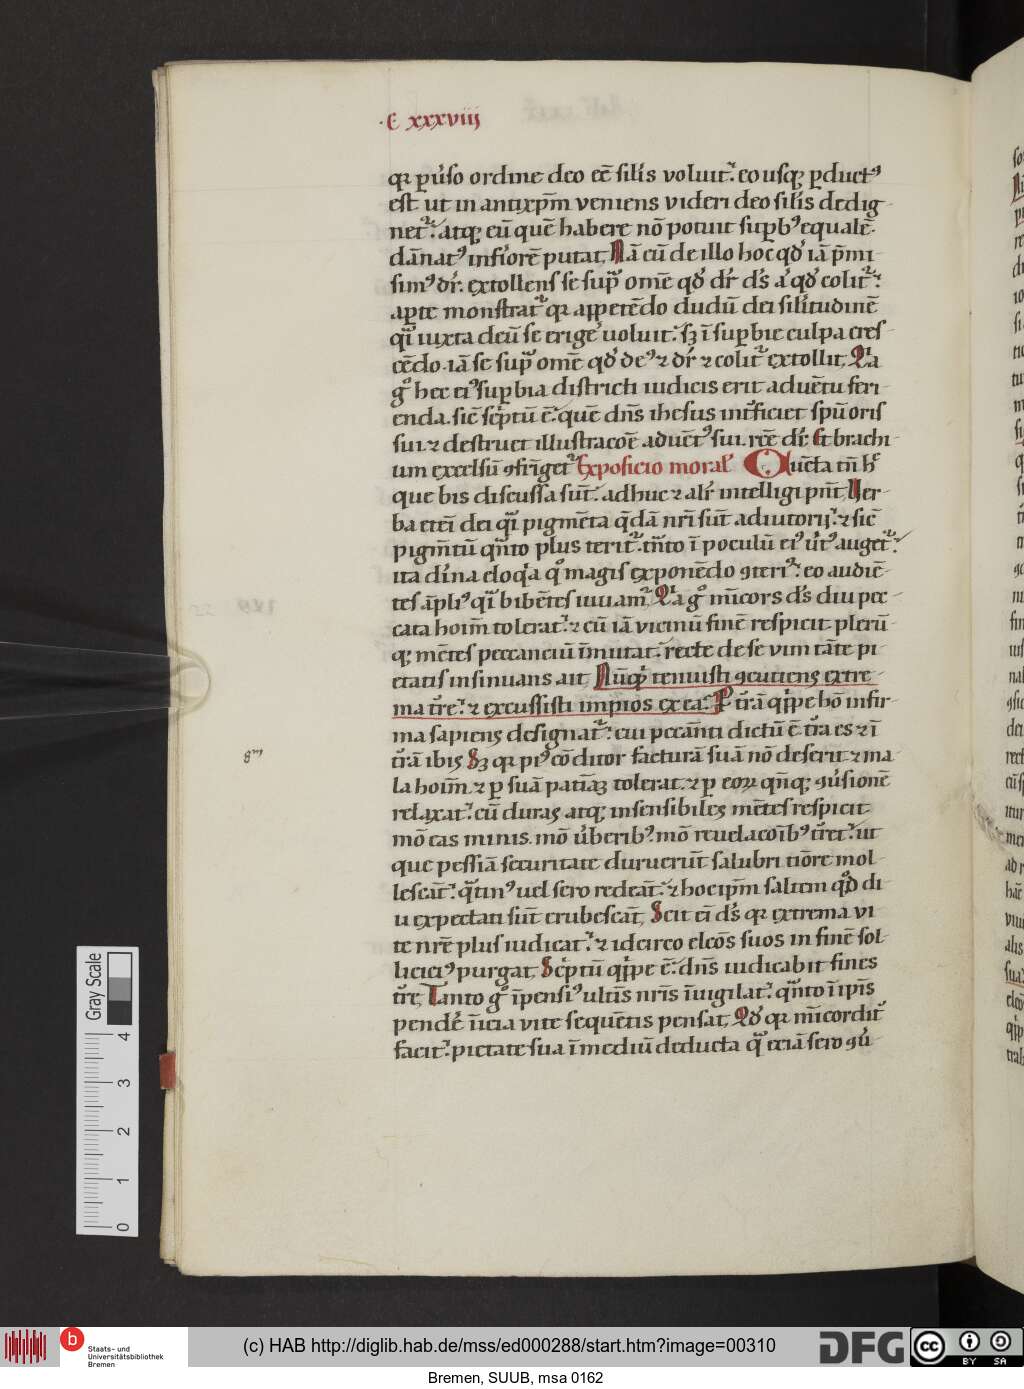 ·C xxxviij
qꝛ ꝑuͥso ordine deo eē siłis voluit᷑. eo usqꝫ ꝑductꝰ
est ut in antixp̄m veniens videri deo siłis dedig-
net᷑. atqꝫ eū quē habere nō potuit suꝑbꝰ equalē.
dānatꝰ inferiorē putat. Nā cū de illo hoc qđ iā p̄mi-
simꝰ dr̄. extollens se supͣ om̄e qđ dr̄ dꝰs aͭ qđ colit᷑.
aꝑte monstrat᷑ qꝛ appetēdo dudū dei silitudinē
qͣi iuxta deū se erigeͤ uoluit. sꝫ ī suꝑbie culpa cres-
cēdo. iā se supͣ om̄e qđ deꝰ ⁊ dr̄ ⁊ colit᷑ extollit. Qͥa
gͦ hec eiꝰ suꝑbia districti iudicis erit aduētu feri-
enda. sic̄ sc̄ptū ē. quē dn̄s ihesus int̄ficiet spū oris
sui. ⁊ destruet illustracōe aduētꝰ sui. rc̄e dr̄. Et brachi-
um excelsū ꝯfrīget᷑. Exposicio moralꝭ Cūcta tn̄ hͨ
que bis discussa sūt. adhuc ⁊ alr̄ intelligi pn̄t. Uer-
ba eten̄ dei qͣi pigmēta q̄dā nr̄i sūt adiutorij. ⁊ sic̄
pigm̄tū qͣnto plus terit᷑. tͣnto ī poculū eiꝰ uͥtꝰ auget᷑.
ita diͥna eloqͥa qͦ magis exponēdo ꝯterimꝰ. eo audiē-
tes āpliꝰ qͣi bibētes iuuam᷑. Qͥa gͦ mīcors dꝰs diu pec-
cata hoīm tolerat. ⁊ cū iā vicinū finē respicit plerū-
qꝫ mētes peccanciū īmutat. recte de se vim tāte pi-
etatis insinuans ait. Nūqͥd tenuisti ꝯcutiens extre-
ma tr̄e. ⁊ excussisti impios ex ea. Ꝑ tr̄ā qͥppe hō infir-
ma sapiens designat᷑. cui peccāti dictū ē tr̄a es ⁊ ī
gᵐ
tr̄ā ibis. Sꝫ qꝛ piꝰ cōditor facturā suā nō deserit ⁊ ma-
la hoīm ⁊ ꝑ suā patīaꝫ tolerat. ⁊ ꝑ eoꝝ qn̄qꝫ ꝯuͥsionē
relaxat. cū duras atqꝫ insensibiles mētes respicit
mō eas minis. mō uͥberibꝰ. mō reuelacōibꝰ tr̄et. ut
que pessīā securitate duruerūt salubri tīore mol-
lescāt. qͣtinꝰ uel sero redeāt. ⁊ hoc ip̄m saltem qđ di-
u expectati sūt erubescāt. Scit eī dꝰs qꝛ extrema vi-
te nr̄e plus iudicat᷑. ⁊ idcirco elcōs suos in finē sol-
liciciꝰ purgat. Sc̄ptū qͥppe ē. dn̄s iudicabit fines
tr̄e. Tanto gͦ īpensiꝰ ultīs nr̄is īuigilat. qͣnto ī ip̄is
pendeͤ īicia vite sequētis pensat. Qđ qꝛ mīcordit᷑
facit. pietate sua ī mediū deducta qͣ eciā sero ꝯuͥ-
Gray Scale
4
3
2
1
0
b
Staats- und
Universitätsbibliothek
Bremen
(c) HAB http://diglib.hab.de/mss/ed000288/start.htm?image=00310
DFG
cc BY SA
Bremen, SUUB, msa 0162